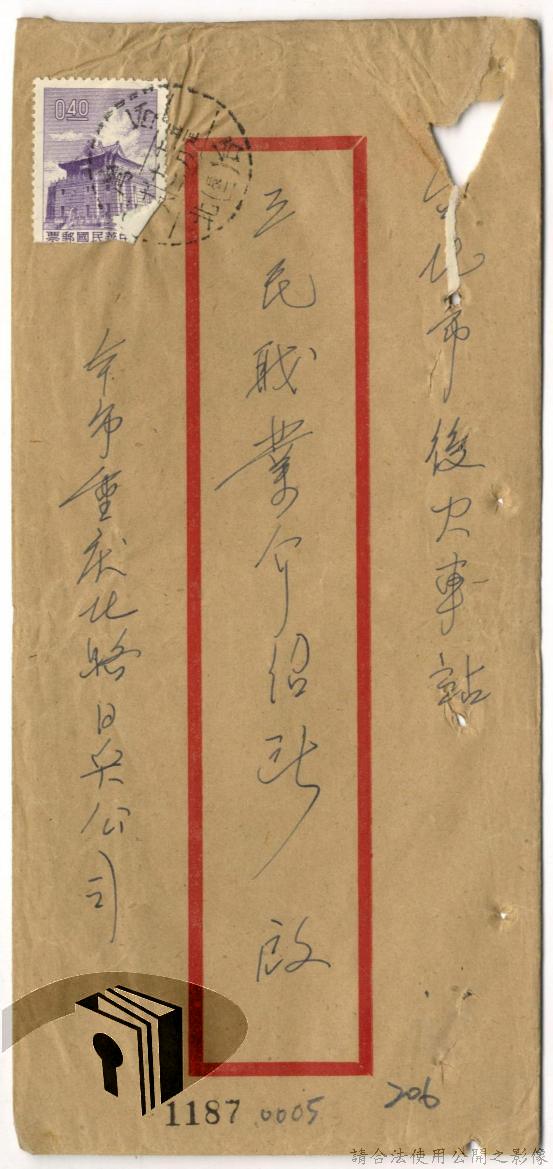 台北市後火車站
立民職業介紹所 啟
本市重慶北路日英公司
040
中華民國郵票
1187 0005
206
請合法使用公開之影像